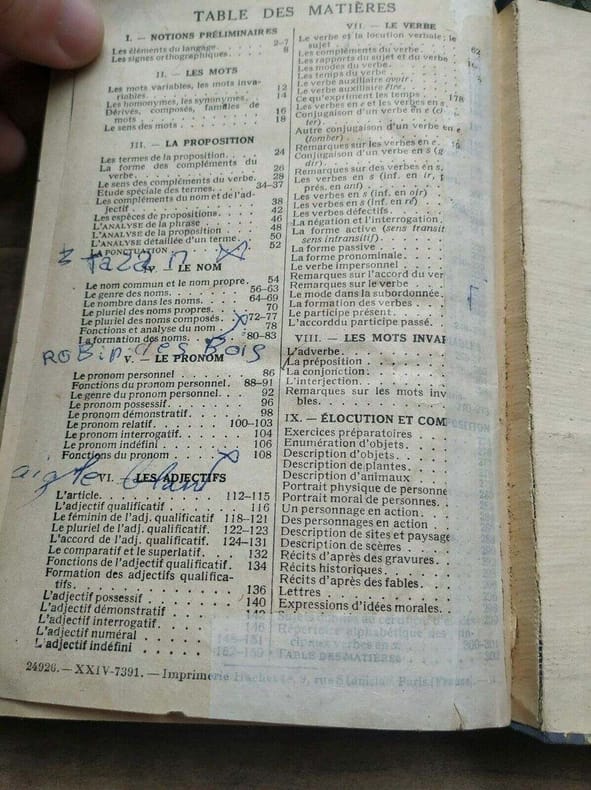 TABLE DES MATIÈRES
I. — NOTIONS PRÉLIMINAIRES
Les éléments du langage. 2-7
Les signes orthographiques. 8
II. — LES MOTS
Les mots variables, les mots inva-
riables. 12
Les homonymes, les synonymes. 14
Dérivés, composés, familles de
mots 16
Le sens des mots 18
III. — LA PROPOSITION
Les termes de la proposition. 24
La forme des compléments du
verbe. 26
Le sens des compléments du verbe. 28
Etude spéciale des termes. 34-37
Les compléments du nom et de l'ad-
jectif. 38
Les espèces de propositions. 42
L'ANALYSE de la phrase 46
L'ANALYSE de la proposition 48
L'ANALYSE détaillée d'un terme. 50
LA PONCTUATION 52
LE NOM
Le nom commun et le nom propre. 54
Le genre des noms. 56-63
Le nombre dans les noms. 64-69
Le pluriel des noms propres. 70
Le pluriel des noms composés. 72-77
Fonctions et analyse du nom 78
La formation des noms. 80-83
ROBin des Bois
V. — LE PRONOM
Le pronom personnel 86
Fonctions du pronom personnel. 88-91
Le genre du pronom personnel. 92
Le pronom possessif 96
Le pronom démonstratif 98
Le pronom relatif 100-103
Le pronom interrogatif. 104
Le pronom indéfini 106
Fonctions du pronom 108
aigle
VI. — LES ADJECTIFS
L'article. 112-115
L'adjectif qualificatif 116
Le féminin de l'adj. qualificatif 118-121
Le pluriel de l'adj. qualificatif. 122-123
L'accord de l'adj. qualificatif. 124-131
Le comparatif et le superlatif. 132
Fonctions de l'adjectif qualificatif. 134
Formation des adjectifs qualifica-
tifs. 136
L'adjectif possessif 140
L'adjectif démonstratif 142
L'adjectif interrogatif. 146
L'adjectif numéral 148-151
L'adjectif indéfini
VII. — LE VERBE
Le verbe et la locution verbale; le
sujet 62
Les compléments du verbe.
Les rapports du sujet et du verbe
Les modes du verbe.
Les temps du verbe
Le verbe auxiliaire avoir.
Le verbe auxiliaire être.
Ce qu'expriment les temps 178
Les verbes en e et les verbes en s.
Conjugaison d'un verbe en e
Autre conjugaison d'un verbe en e
(tomber)
Remarques sur les verbes en e.
Conjugaison d'un verbe en s
Remarques sur des verbes en s.
Les verbes en s (inf. en ir,
prés. en ant)
Les verbes en s (inf. en oir)
Les verbes en s (inf. en re)
Les verbes défectifs.
La négation et l'interrogation.
La forme active (sens transit
sens intransitif)
La forme passive
La forme pronominale.
Le verbe impersonnel
Remarques sur l'accord du ver
Remarques sur le verbe
Le mode dans la subordonnée.
La formation des verbes
Le participe présent.
L'accorddu participe passé.
VIII. — LES MOTS INVAR
L'adverbe.
La préposition
La conjonction.
L'interjection.
Remarques sur les mots inv
bles.
IX. — ÉLOCUTION ET COM
Exercices préparatoires
Enumération d'objets.
Description d'objets.
Description de plantes.
Description d'animaux
Portrait physique de personne
Portrait moral de personnes.
Un personnage en action.
Des personnages en action
Description de sites et paysage
Description de scènes
Récits d'après des gravures.
Récits historiques
Récits d'après des fables.
Lettres
Expressions d'idées morales.
TABLE DES MATIÈRES
24926. — XXIV-7391. — Imprimerie Hachette, 9, rue Stanislas, Paris.